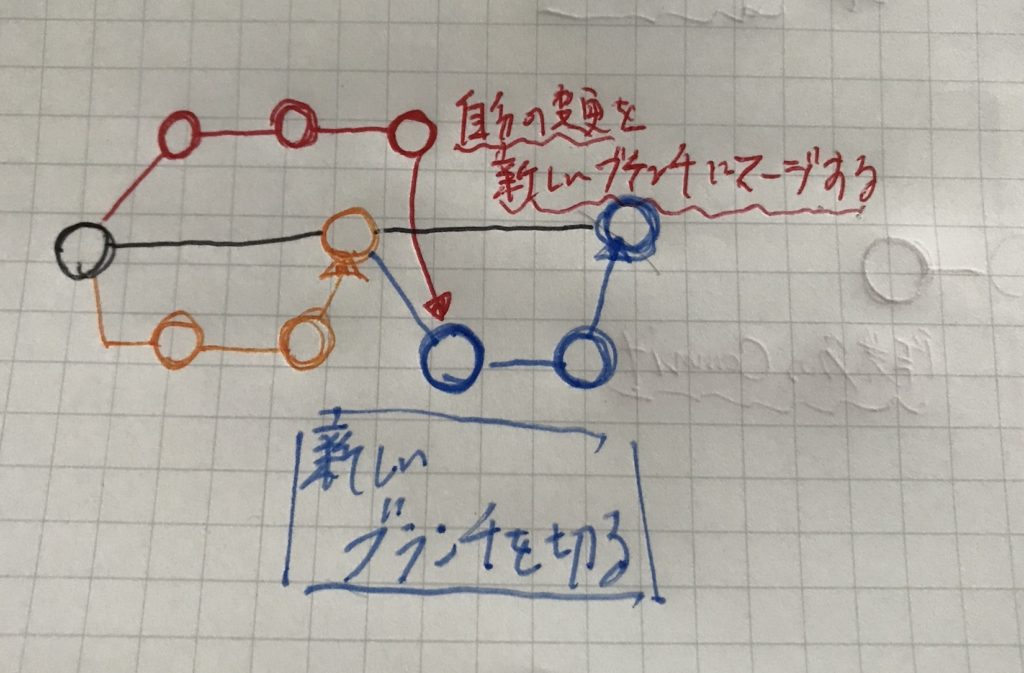 自分の変更を
新しいブランチにマージする
新しい
ブランチを切る